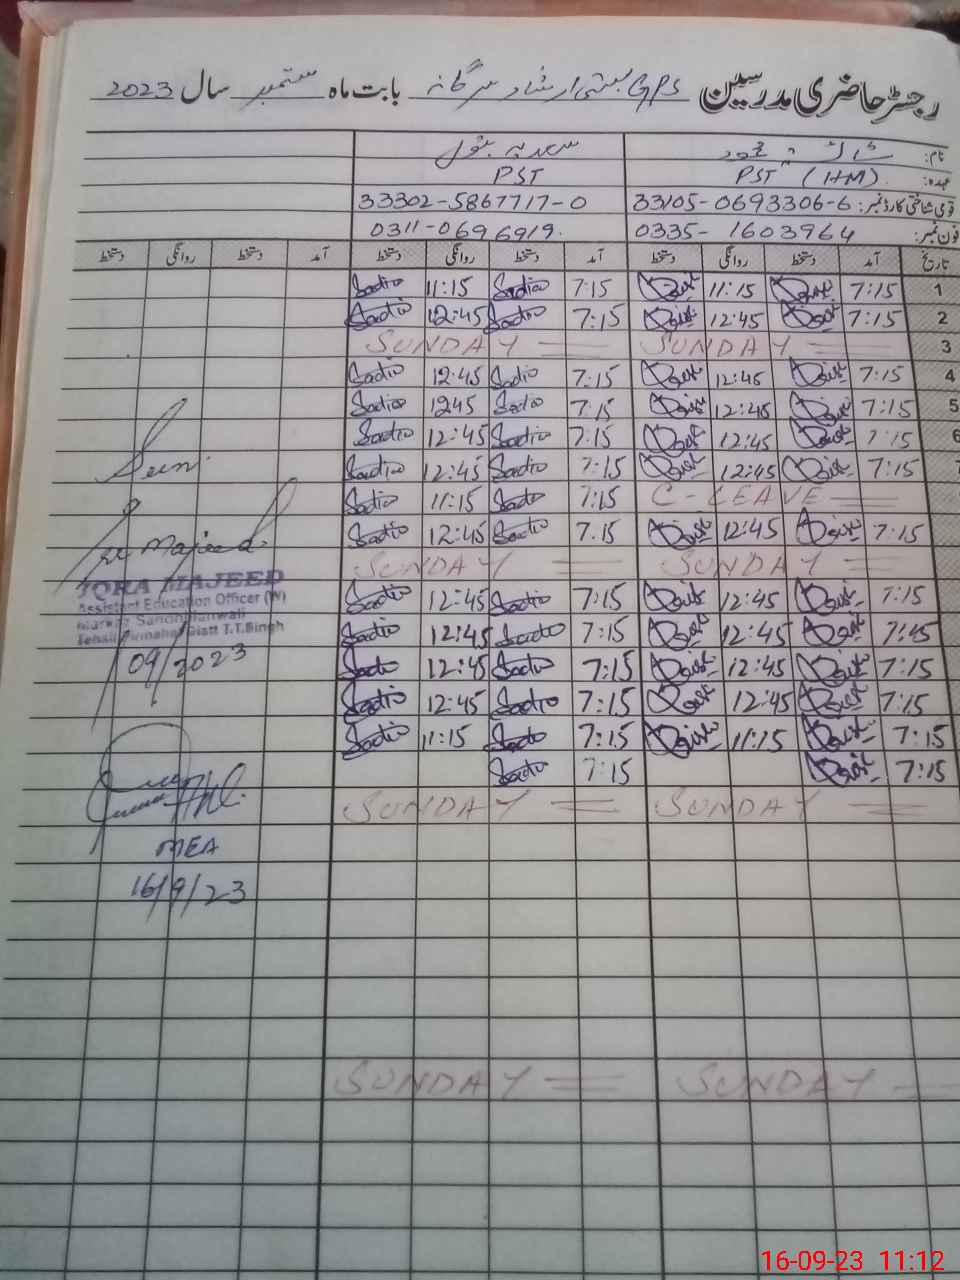 رجسٹر حاضری مدرسین GPS بستی ارشاد سرگانہ بابت ماہ ستمبر سال 2023
نام: سعدیہ بتول
عہدہ: PST (HM) PST
قومی شناختی کارڈ نمبر: 33105-0693306-6 33302-5867717-0
فون نمبر: 0335-1603964 0311-0696919.
تاریخ آمد دستخط روانگی دستخط آمد دستخط روانگی دستخط آمد دستخط روانگی دستخط
1 7:15 11:15 7:15 Sadio 11:15 Sadio
2 7:15 12:45 7:15 Sadio 12:45 Sadio
3 SUNDAY SUNDAY
4 7:15 12:45 7:15 Sadio 12:45 Sadio
5 7:15 12:45 7:15 Sadio 1245 Sadio
6 7:15 12:45 7:15 Sadio 12:45 Sadio
7 7:15 12:45 7:15 Sadio 12:45 Sadio
C-LEAVE 7:15 Sadio 11:15 Sadio
7:15 12:45 7.15 Sadio 12:45 Sadio
SUNDAY SUNDAY
7:15 12:45 7:15 Sadio 12:45 Sadio
7:45 12:45 7:15 Sadio 12:45 Sadio
7:15 12:45 7:15 Sadio 12:45 Sadio
7:15 12:45 7:15 Sadio 12:45 Sadio
7:15 11:15 7:15 Sadio 11:15 Sadio
7:15 7:15 Sadio
SUNDAY SUNDAY
SUNDAY SUNDAY
Seen.
Majeed
IQRA MAJEED
Assistant Education Officer (W)
Markaz Sandhilianwali
Tehsil Pirmahal Distt T.T.Singh
09/2023
MEA
16/9/23
16-09-23 11:12